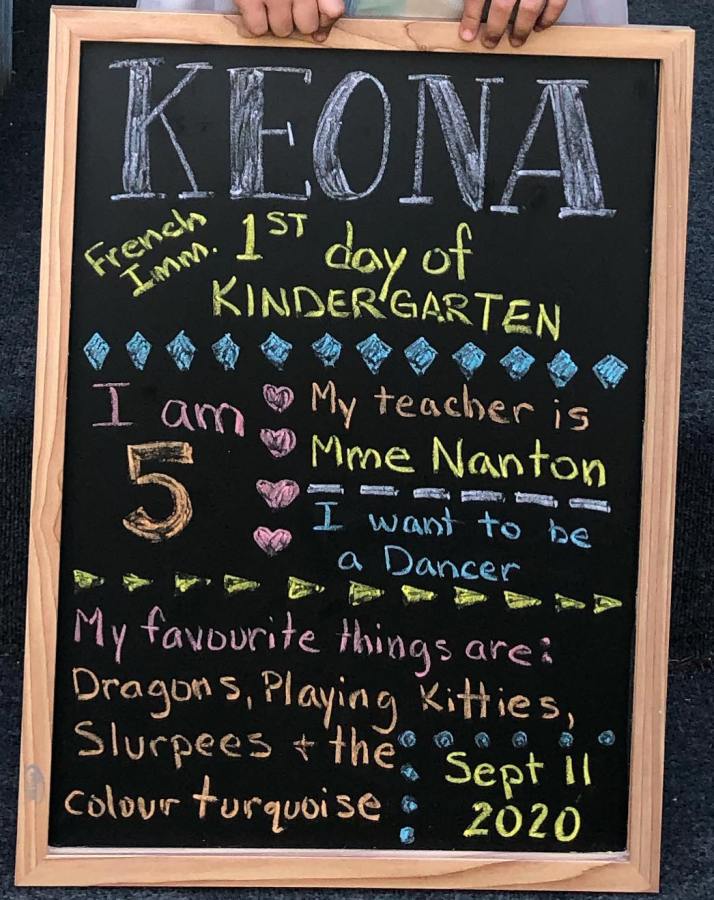 KEONA
French
Imm.
1ST day of
KINDERGARTEN
I am
5
My teacher is
Mme Nanton
I want to be
a Dancer
My favourite things are:
Dragons, Playing Kitties,
Slurpees + the
colour turquoise
Sept 11
2020